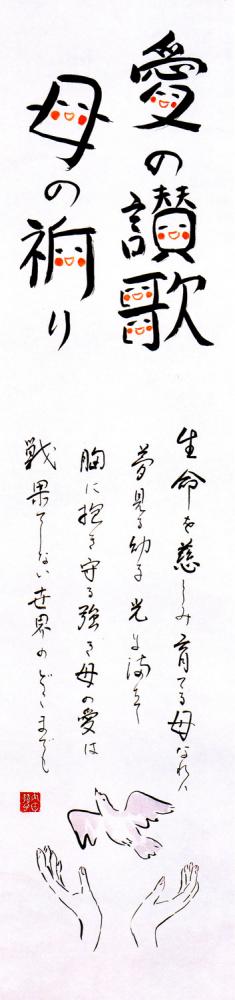 愛の讃歌
母の祈り
生命を慈しみ育てる母なれば
夢見る幼子 光に満ちて
胸に抱き守る強き母の愛は
戦果てしない世界のどこまでも